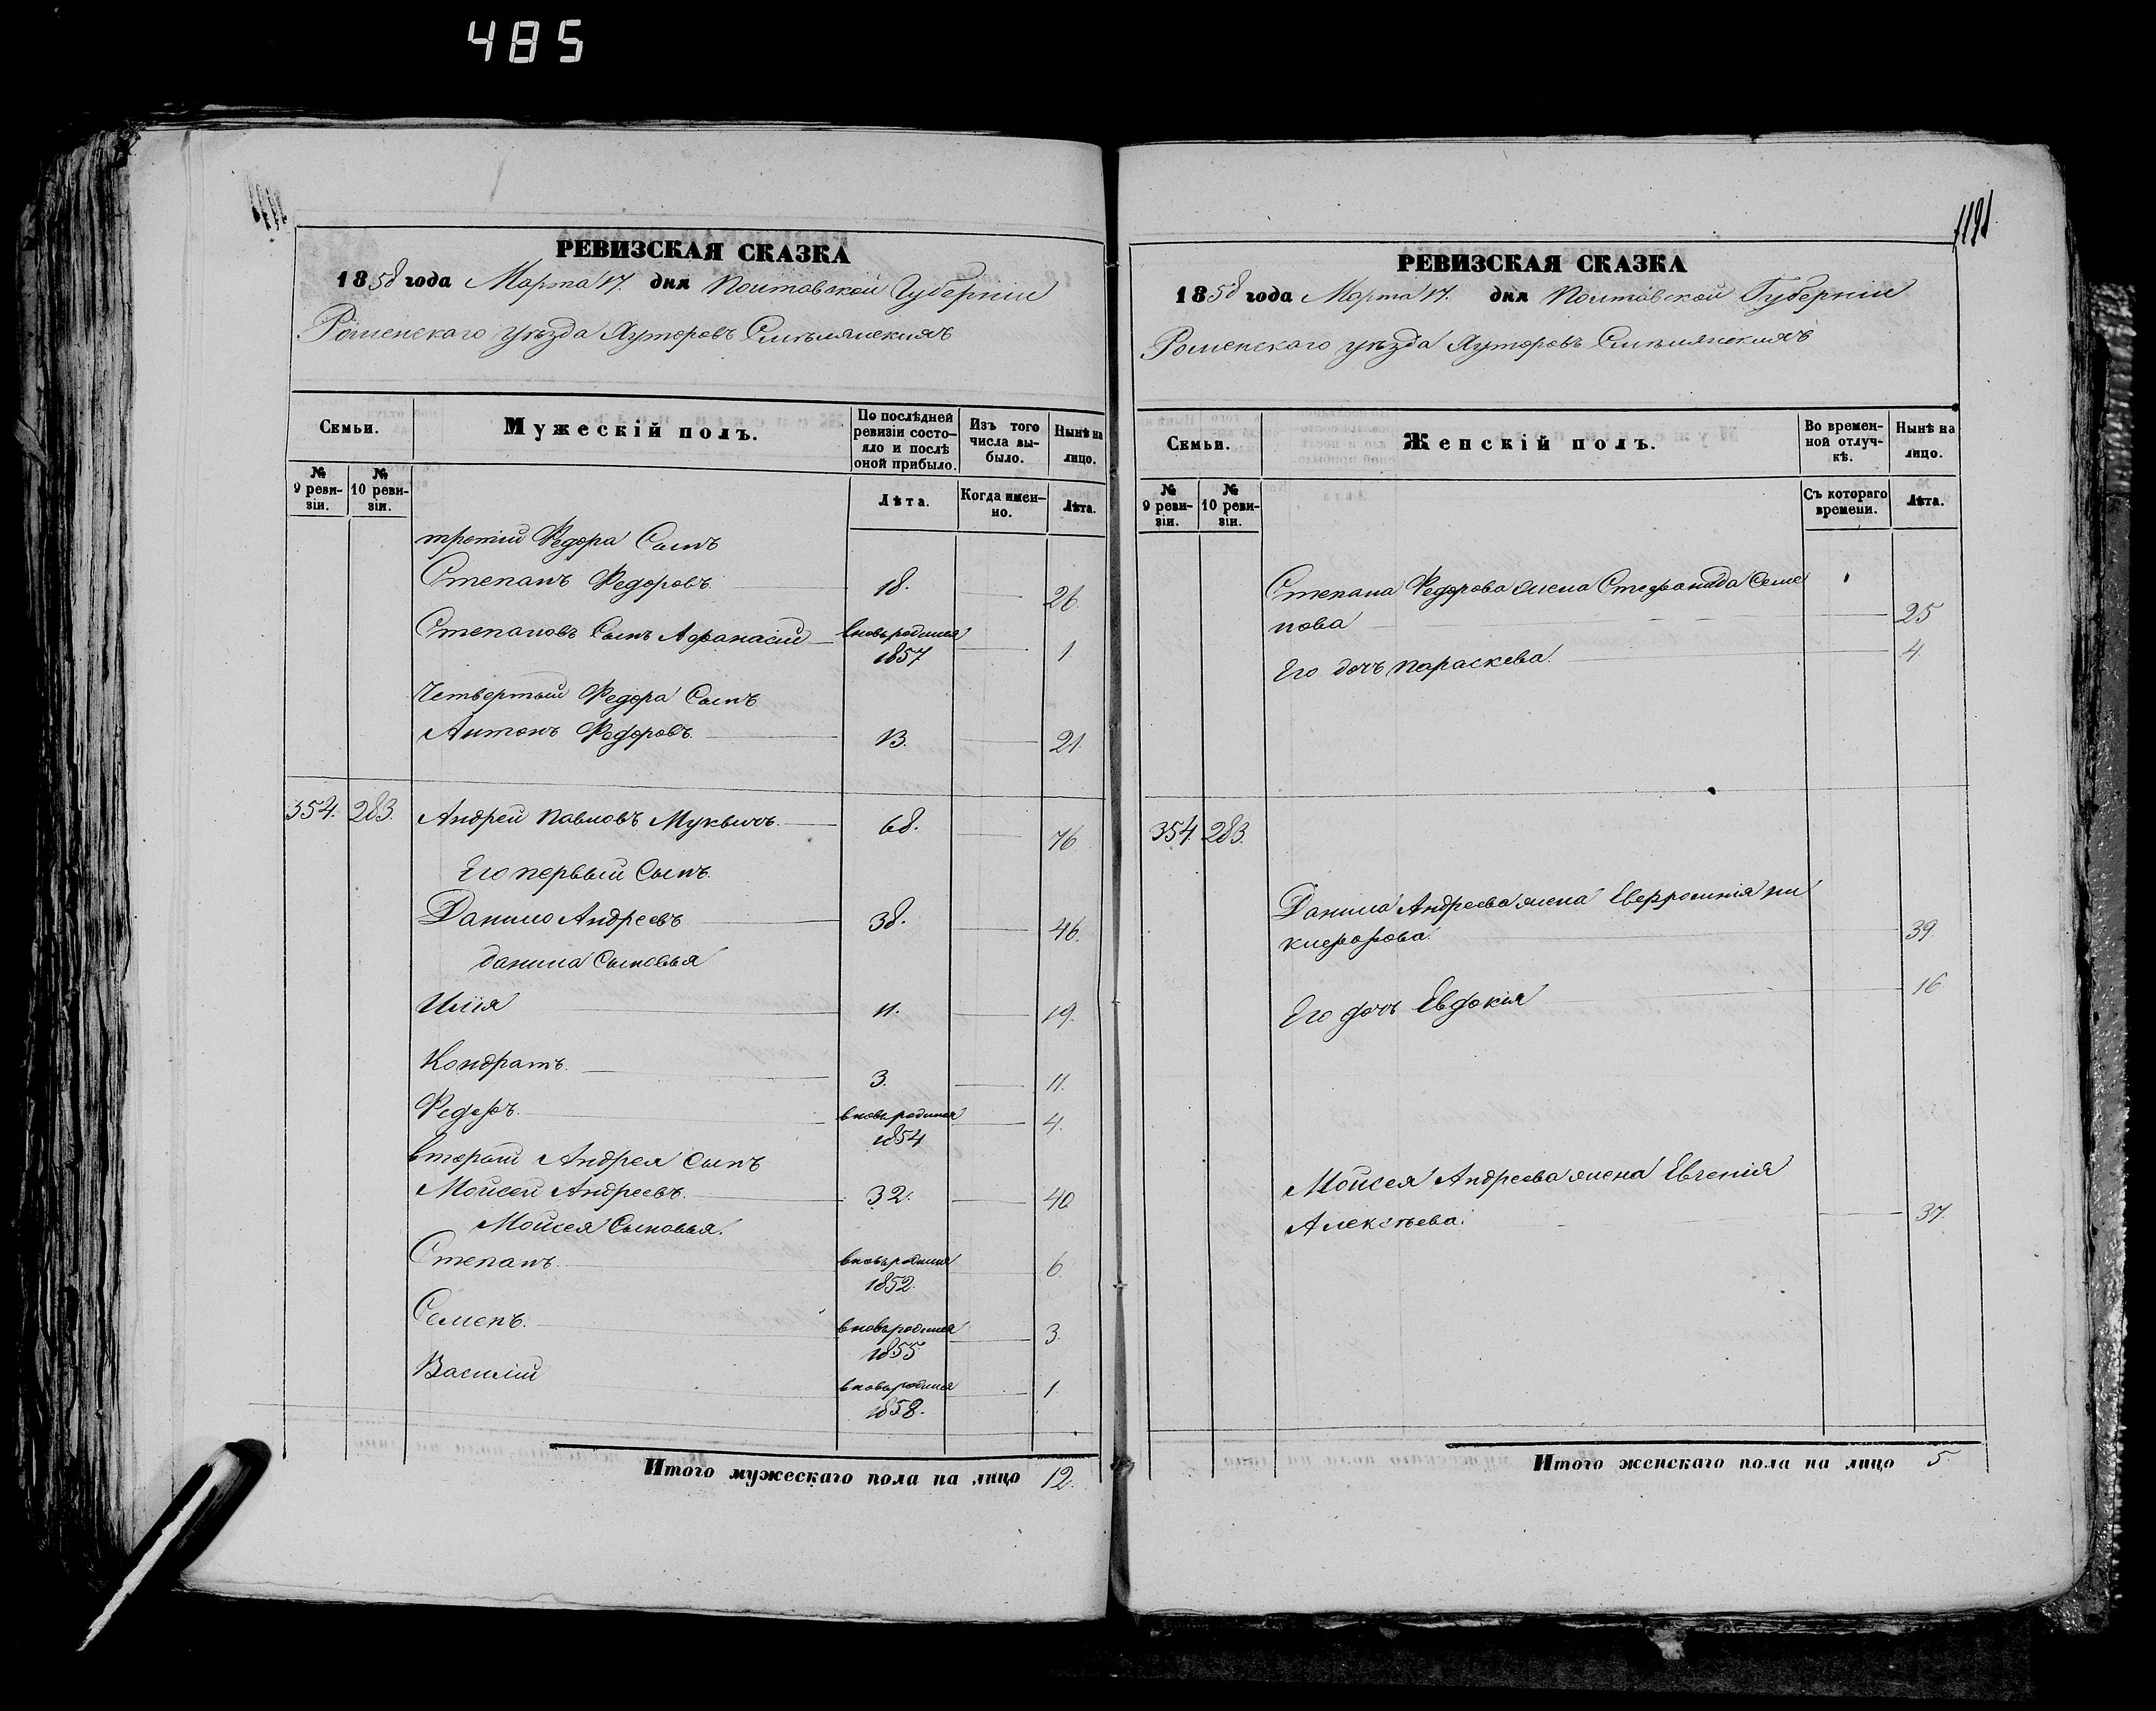 485
1191
РЕВИЗСКАЯ СКАЗКА
1858 года Марта 17. дня Полтавской Губерніи
Роменскаго уѣзда Хуторовъ Смѣлянскихъ
Семьи.
Мужескій полъ.
По послѣдней ревизіи состояло и послѣ оной прибыло.
Изъ того числа выбыло.
Нынѣ на лицо.
№ 9 ревизіи.
№ 10 ревизіи.
Лѣта.
Когда именно.
Лѣта.
третій Федора Сынъ
Степанъ Федоровъ 18. 26.
Степановъ Сынъ Афанасій вновь родился 1857 1
Четвертый Федора Сынъ
Антонъ Федоровъ. 13. 21.
354. 283. Андрей Павловъ Муквичъ. 68. 76
Его первый Сынъ.
Данило Андреевъ 38. 46.
Данила Сыновья
Илія 11. 19.
Кондратъ. 3. 11.
Федоръ. вновь родился 1854 4.
второй Андрея Сынъ
Мойсей Андреевъ. 32. 40
Мойсея Сыновья.
Степанъ вновь родился 1852. 6.
Семенъ. вновь родился 1855 3.
Василій вновь родился 1858. 1.
Итого мужескаго пола на лицо 12.
РЕВИЗСКАЯ СКАЗКА
1858 года Марта 17. дня Полтавской Губерніи
Роменскаго уѣзда Хуторовъ Смѣлянскихъ
Семьи.
Женскій полъ.
Во временной отлучкѣ.
Нынѣ на лицо.
№ 9 ревизіи.
№ 10 ревизіи.
Съ котораго времени.
Лѣта.
Степана Федорова жена Стефанида Семе
нова 25
Его дочь Параскева. 4
354 283.
Данила Андреева жена Евфросинія Ни
кифорова. 39.
Его дочь Евдокія 16
Мойсея Андреева жена Евгенія
Алексѣева. 37.
Итого женскаго пола на лицо 5